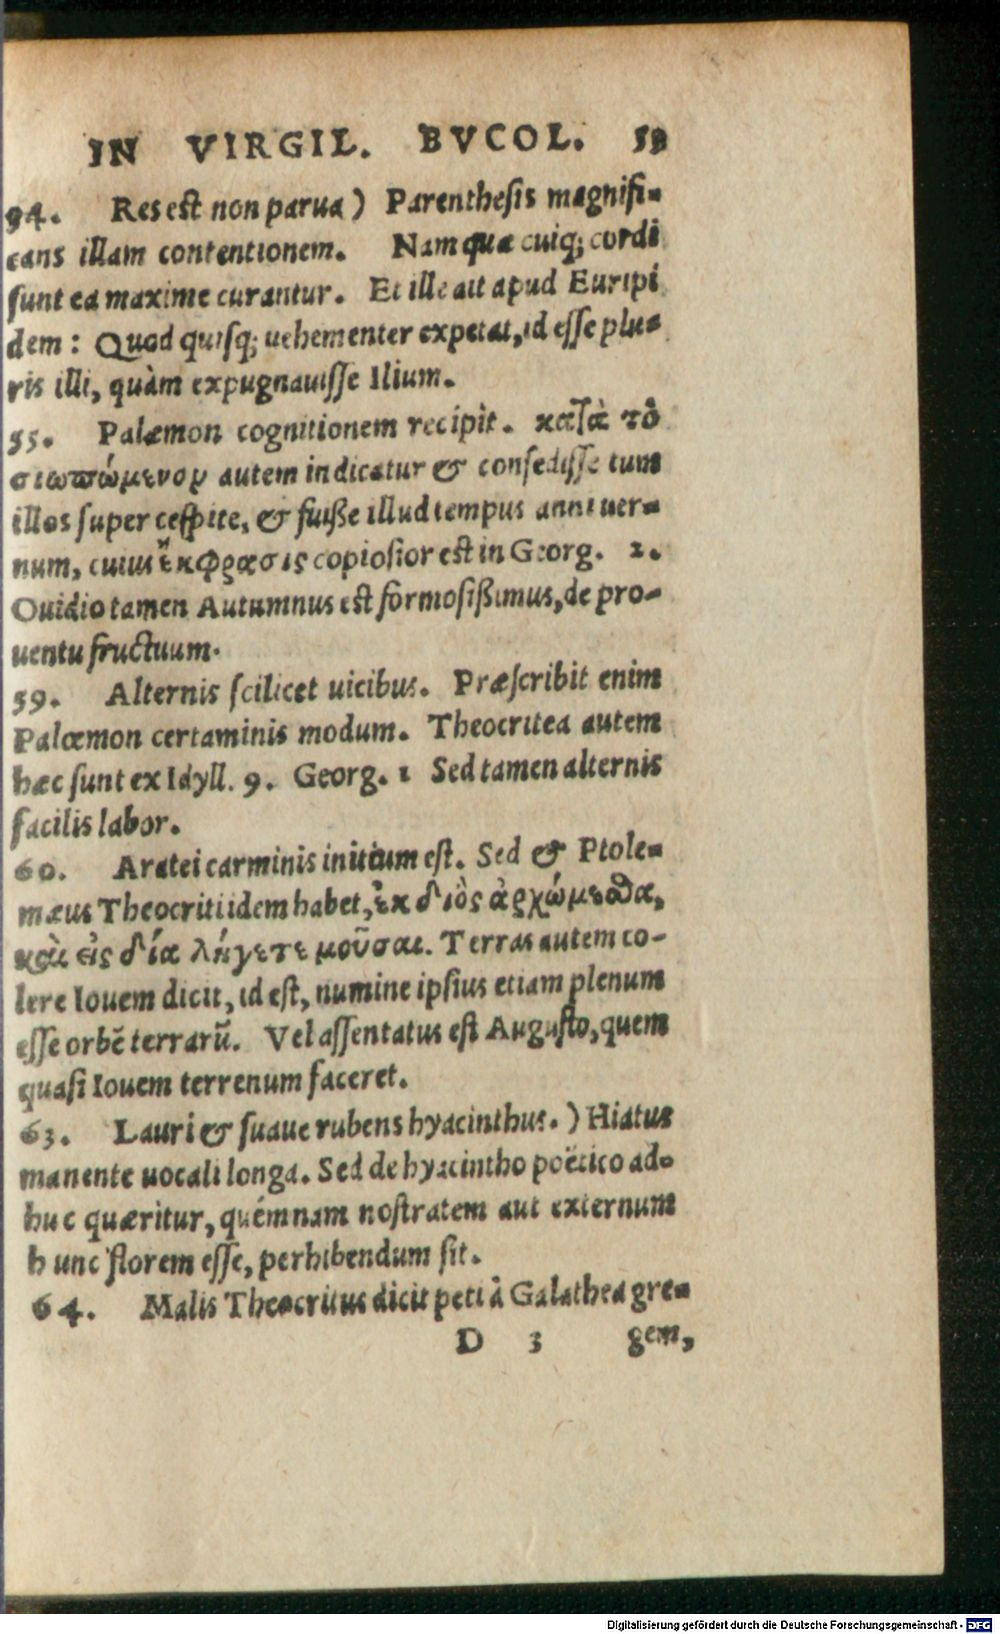 IN VIRGIL. BVCOL.
94. Res est non parua) Parenthesis magnifi-
cans illam contentionem. Nam quæ cuiq; cordi
sunt ea maxime curantur. Et ille ait apud Euripi
dem: Quod quisq; uehementer expetat, id esse plu-
ris illi, quàm expugnauisse Ilium.
55. Palæmon cognitionem recipit. κατὰ τὸ
σιωπώμενον autem indicatur & consedisse tum
illos super cespite, & fuiße illud tempus anni uer-
num, cuius ἔκφρασις copiosior est in Georg. 2.
Ouidio tamen Autumnus est formosißimus, de pro-
uentu fructuum.
59. Alternis scilicet uicibus. Præscribit enim
Palæmon certaminis modum. Theocritea autem
hæc sunt ex Idyll. 9. Georg. 1 Sed tamen alternis
facilis labor.
60. Aratei carminis initium est. Sed & Ptole-
mæus Theocriti idem habet, ἐκ διὸς ἀρχώμεσθα,
καὶ εἰς δία λήγετε μοῦσαι. Terras autem co-
lere Iouem dicit, id est, numine ipsius etiam plenum
esse orbẽ terrarũ. Vel assentatus est Augusto, quem
quasi Iouem terrenum faceret.
63. Lauri & suaue rubens hyacinthus.) Hiatus
manente uocali longa. Sed de hyacintho poëtico ad-
huc quæritur, quémnam nostratem aut externum
hunc florem esse, perhibendum sit.
64. Malis Theocritus dicit peti à Galathea gre-
D 3 gem,
Digitalisierung gefördert durch die Deutsche Forschungsgemeinschaft - DFG